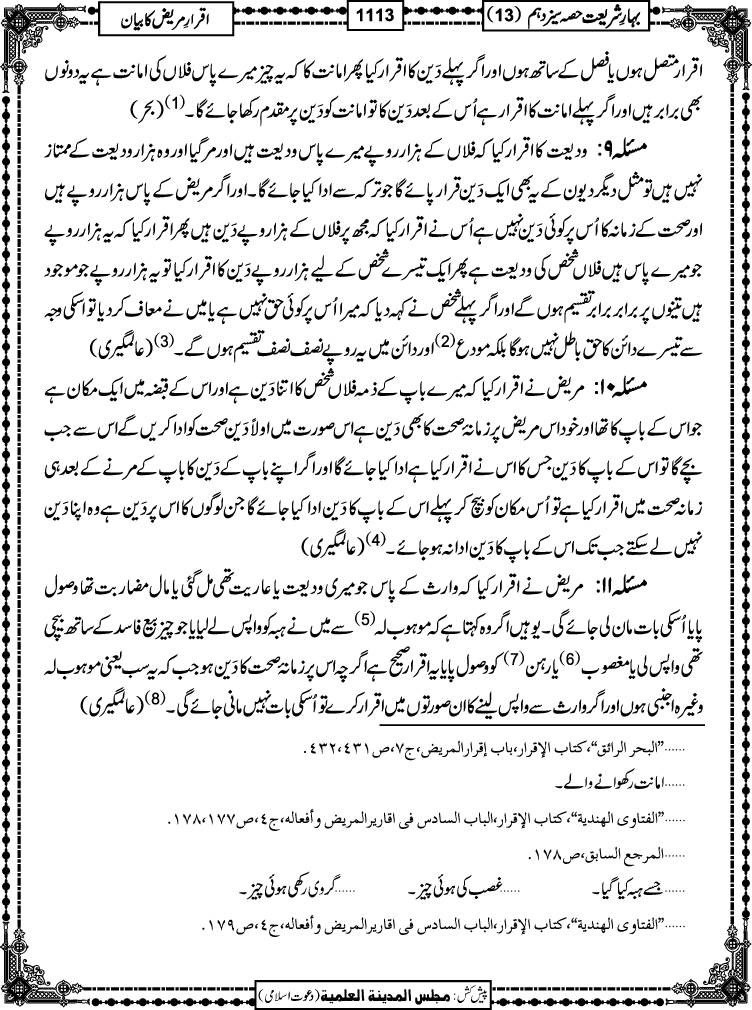 بہارِ شریعت حصہ سیزدہم (13)
1113
اقرارِ مریض کا بیان
اقرار متصل ہوں یا فصل کے ساتھ ہوں اور اگر پہلے دَین کا اقرار کیا پھر امانت کا کہ یہ چیز میرے پاس فلاں کی امانت ہے یہ دونوں
بھی برابر ہیں اور اگر پہلے امانت کا اقرار ہے اُس کے بعد دَین کا تو امانت کو دَین پر مقدم رکھا جائے گا۔(1) (بحر)
مسئلہ ۹: ودیعت کا اقرار کیا کہ فلاں کے ہزار روپے میرے پاس ودیعت ہیں اور مرگیا اور وہ ہزار ودیعت کے ممتاز
نہیں ہیں تو مثل دیگر دیون کے یہ بھی ایک دَین قرار پائے گا جو ترکہ سے ادا کیا جائے گا۔ اور اگر مریض کے پاس ہزار روپے ہیں
اور صحت کے زمانہ کا اُس پر کوئی دَین نہیں ہے اُس نے اقرار کیا کہ مجھ پر فلاں کے ہزار روپے دَین ہیں پھر اقرار کیا کہ یہ ہزار روپے
جو میرے پاس ہیں فلاں شخص کی ودیعت ہے پھر ایک تیسرے شخص کے لیے ہزار روپے دَین کا اقرار کیا تو یہ ہزار روپے جو موجود
ہیں تینوں پر برابر برابر تقسیم ہوں گے اور اگر پہلے شخص نے کہہ دیا کہ میرا اُس پر کوئی حق نہیں ہے یا میں نے معاف کر دیا تو اسکی وجہ
سے تیسرے دائن کا حق باطل نہیں ہوگا بلکہ مودع (2) اور دائن میں یہ روپے نصف نصف تقسیم ہوں گے۔(3) (عالمگیری)
مسئلہ ۱۰: مریض نے اقرار کیا کہ میرے باپ کے ذمہ فلاں شخص کا اتنا دَین ہے اور اس کے قبضہ میں ایک مکان ہے
جو اس کے باپ کا تھا اور خود اس مریض پر زمانۂ صحت کا بھی دَین ہے اس صورت میں اولاً دَین صحت کو ادا کریں گے اس سے جب
بچے گا تو اس کے باپ کا دَین جس کا اس نے اقرار کیا ہے ادا کیا جائے گا اور اگر اپنے باپ کے دَین کا باپ کے مرنے کے بعد ہی
زمانہ صحت میں اقرار کیا ہے تو اُس مکان کو بیچ کر پہلے اس کے باپ کا دَین ادا کیا جائے گا جن لوگوں کا اس پر دَین ہے وہ اپنا دَین
نہیں لے سکتے جب تک اس کے باپ کا دَین ادا نہ ہو جائے۔(4) (عالمگیری)
مسئلہ ۱۱: مریض نے اقرار کیا کہ وارث کے پاس جو میری ودیعت یا عاریت تھی مل گئی یا مال مضاربت تھا وصول
پایا اُسکی بات مان لی جائے گی۔ یو ہیں اگر وہ کہتا ہے کہ موہوب لہ (5) سے میں نے ہبہ کو واپس لے لیا یا جو چیز بیع فاسد کے ساتھ بیچی
تھی واپس لی یا مغصوب (6) یا رہن (7) کو وصول پایا یہ اقرار صحیح ہے اگرچہ اس پر زمانۂ صحت کا دَین ہو جب کہ یہ سب یعنی موہوب لہ
وغیرہ اجنبی ہوں اور اگر وارث سے واپس لینے کا ان صورتوں میں اقرار کرے تو اُسکی بات نہیں مانی جائے گی۔(8) (عالمگیری)
......"البحر الرائق"، کتاب الإقرار، باب إقرار المریض، ج۷، ص۴۳۱، ۴۳۲.
......امانت رکھوانے والے۔
......"الفتاوی الهندیة"، کتاب الإقرار، الباب السادس فی اقاریر المریض و أفعاله، ج٤، ص۱۷۷، ۱۷۸.
......المرجع السابق، ص۱۷۸.
...... جسے ہبہ کیا گیا۔ ......غصب کی ہوئی چیز۔ ......گروی رکھی ہوئی چیز۔
......"الفتاوی الهندیة"، کتاب الإقرار، الباب السادس فی اقاریر المریض و أفعاله، ج٤، ص۱۷۹.
پیش کش: مجلس المدینة العلمیة (دعوت اسلامی)